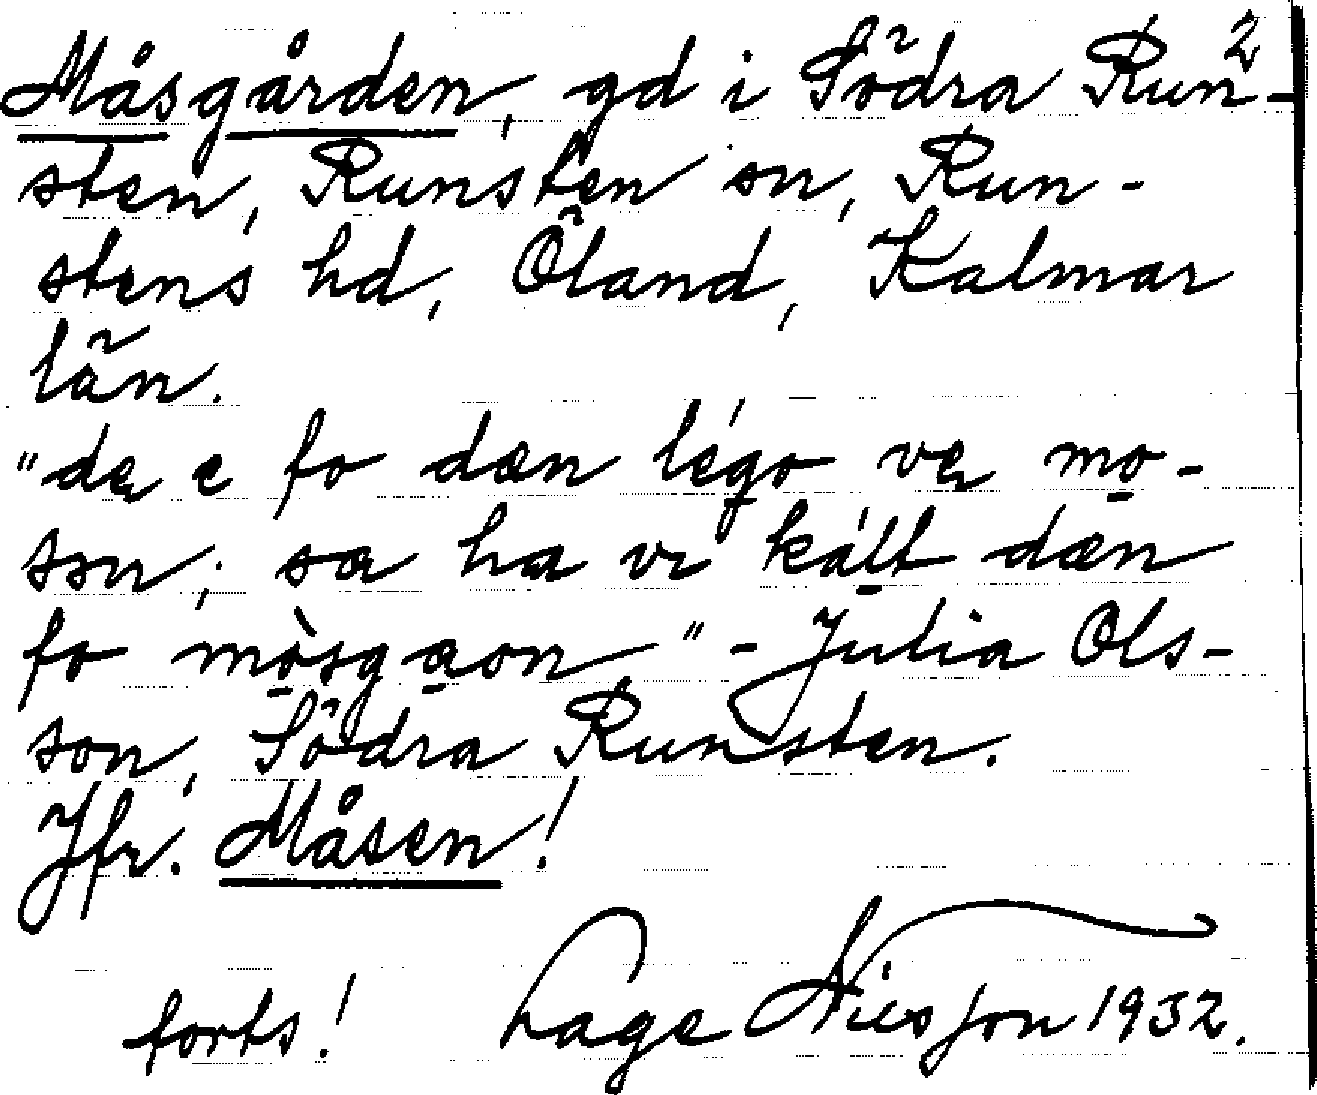 2
Måsgården, gd i Södra Run-
sten, Runsten sn, Run-
stens hd, Öland, Kalmar
län.
"dę e fo dæn légo vę mo̱-
sən; sɑ hɑ vi ká̱lt dæn
fo mȯ̱̀sgɑ̱on" - Julia Ols-
son, Södra Runsten.
Jfr. Måsen!
forts! Lage Nilsson 1932.